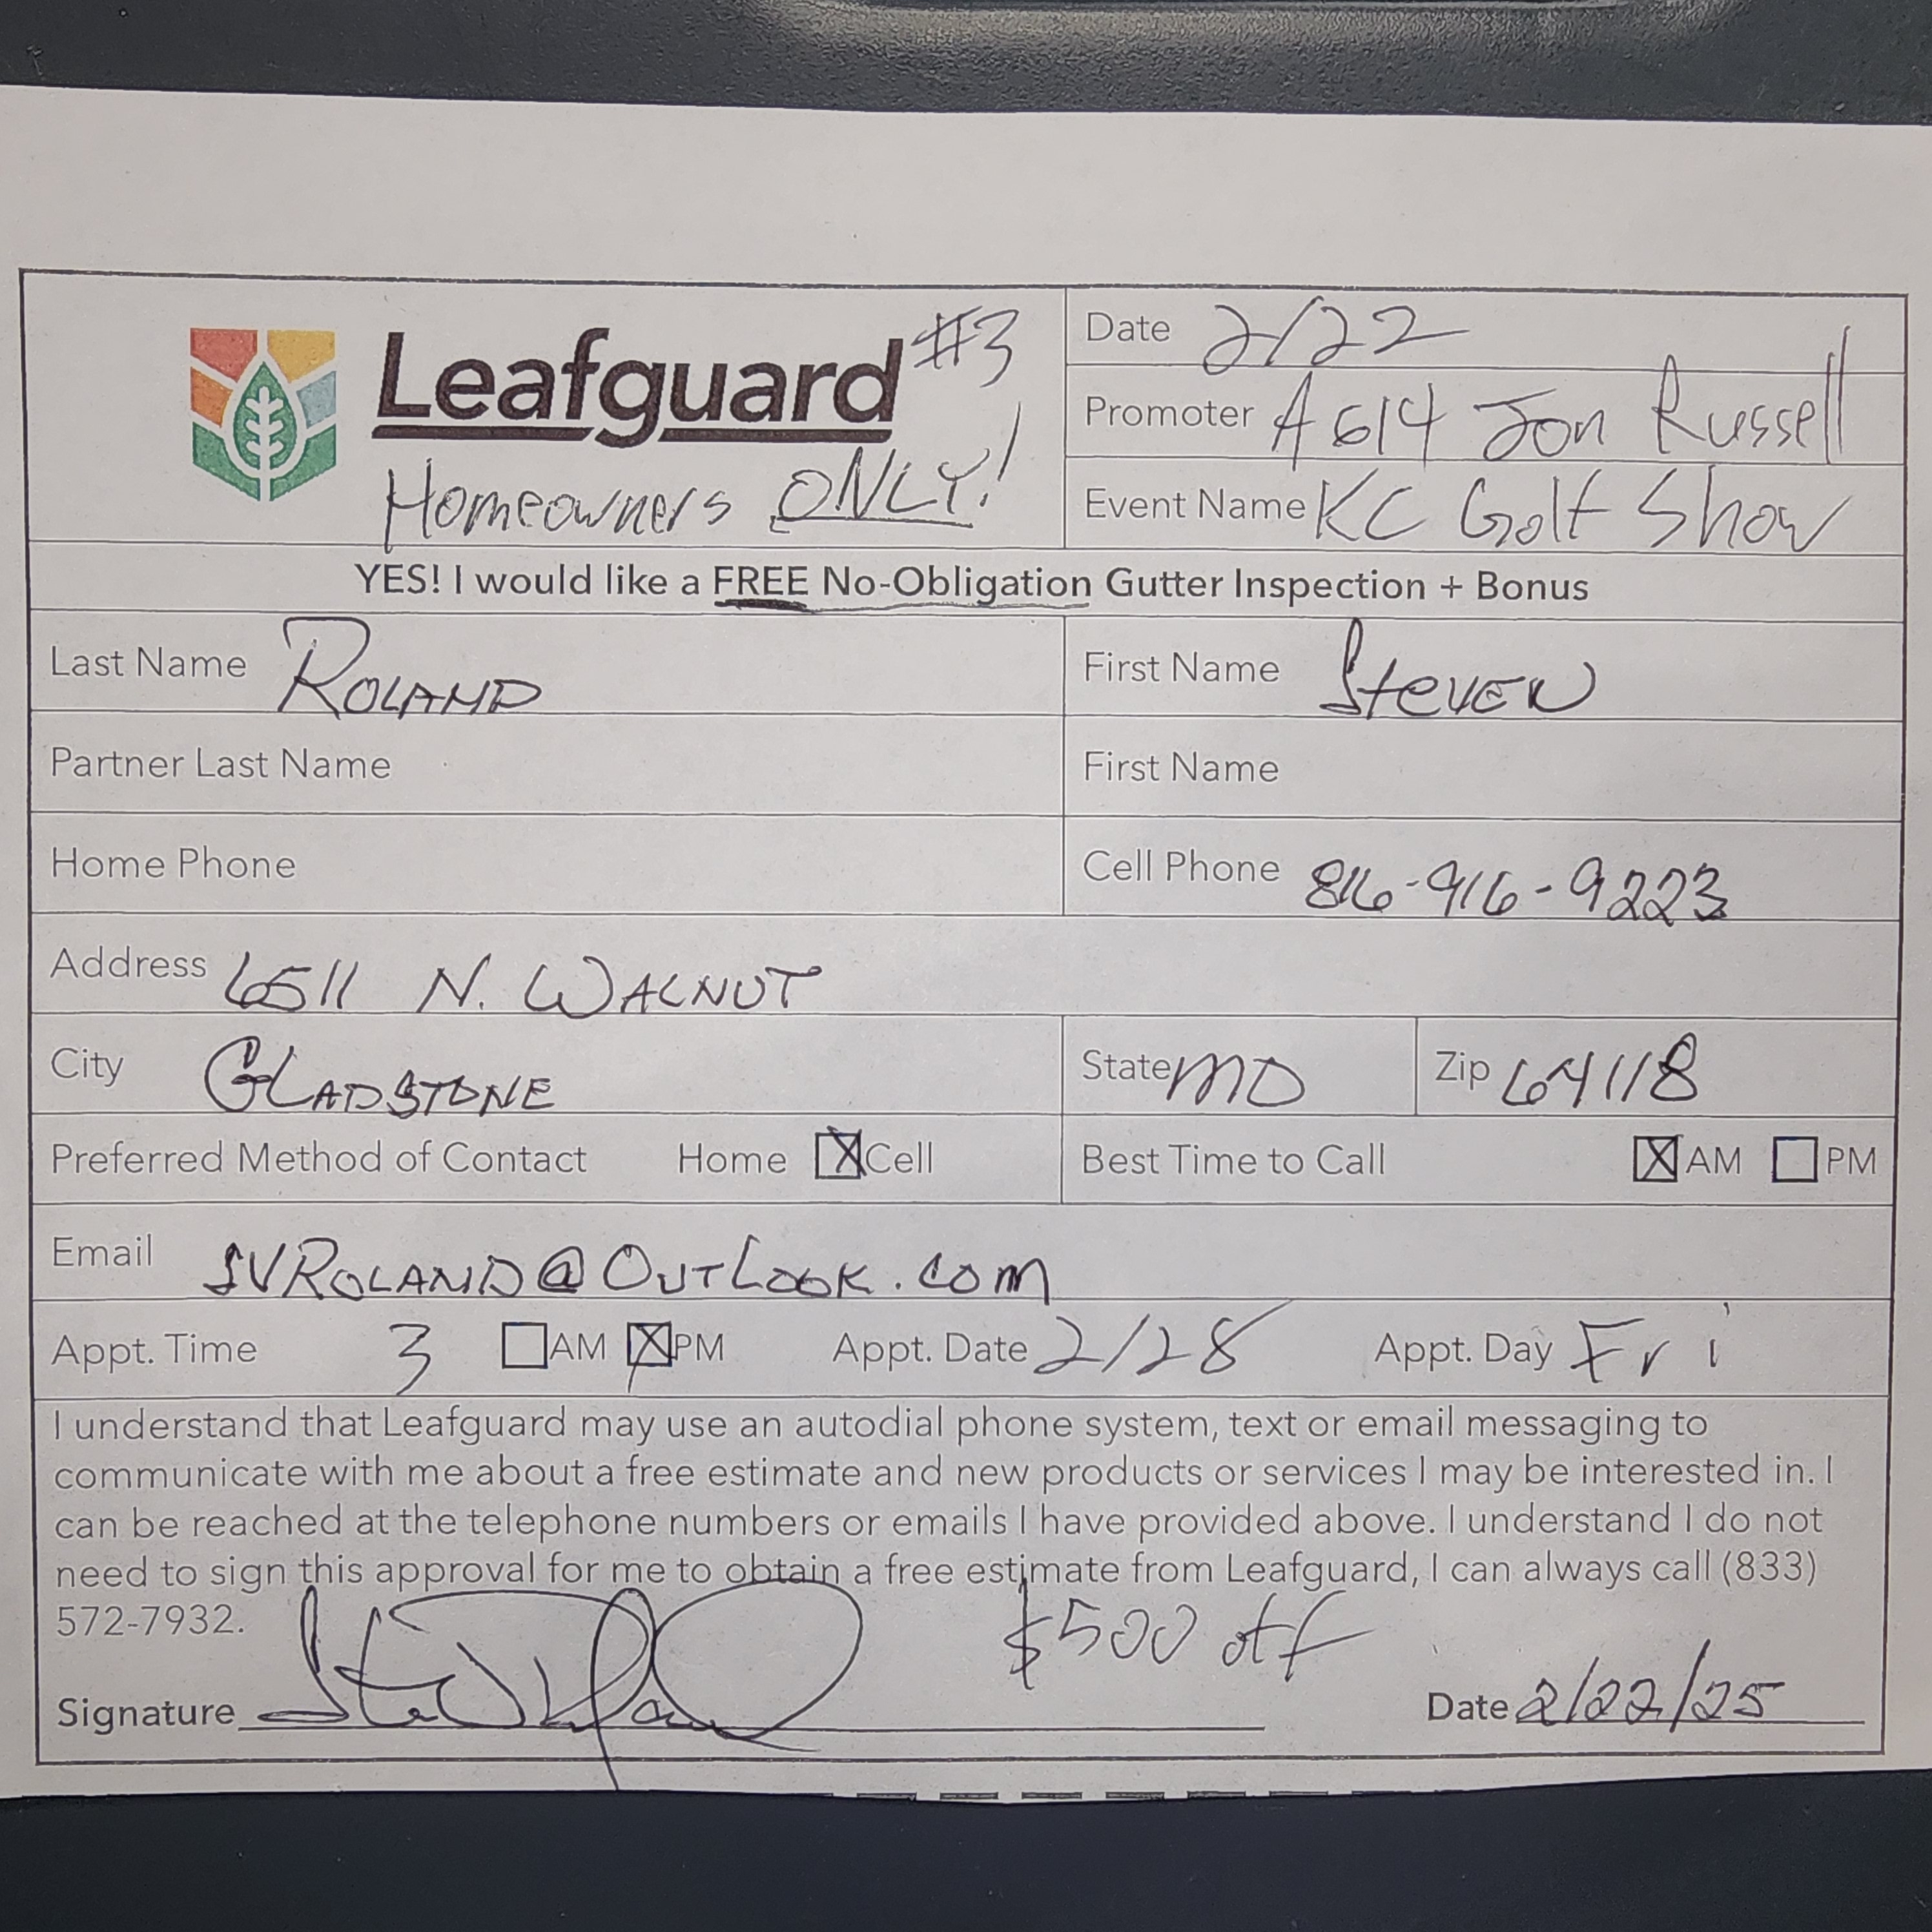 Leafguard #3
Homeowners ONLY!
Date 2/22
Promoter A614 Jon Russell
Event Name KC Golf Show
YES! I would like a FREE No-Obligation Gutter Inspection + Bonus
Last Name ROLAND First Name STEVEN
Partner Last Name First Name
Home Phone Cell Phone 816-916-9223
Address 6511 N. WALNUT
City GLADSTONE State MO Zip 64118
Preferred Method of Contact Home ☒ Cell Best Time to Call ☒ AM ☐ PM
Email SVROLAND@OUTLOOK.COM
Appt. Time 3 ☐ AM ☒ PM Appt. Date 2/28 Appt. Day Fri
I understand that Leafguard may use an autodial phone system, text or email messaging to
communicate with me about a free estimate and new products or services I may be interested in. I
can be reached at the telephone numbers or emails I have provided above. I understand I do not
need to sign this approval for me to obtain a free estimate from Leafguard, I can always call (833)
572-7932.
$500 off
Signature Date 2/22/25